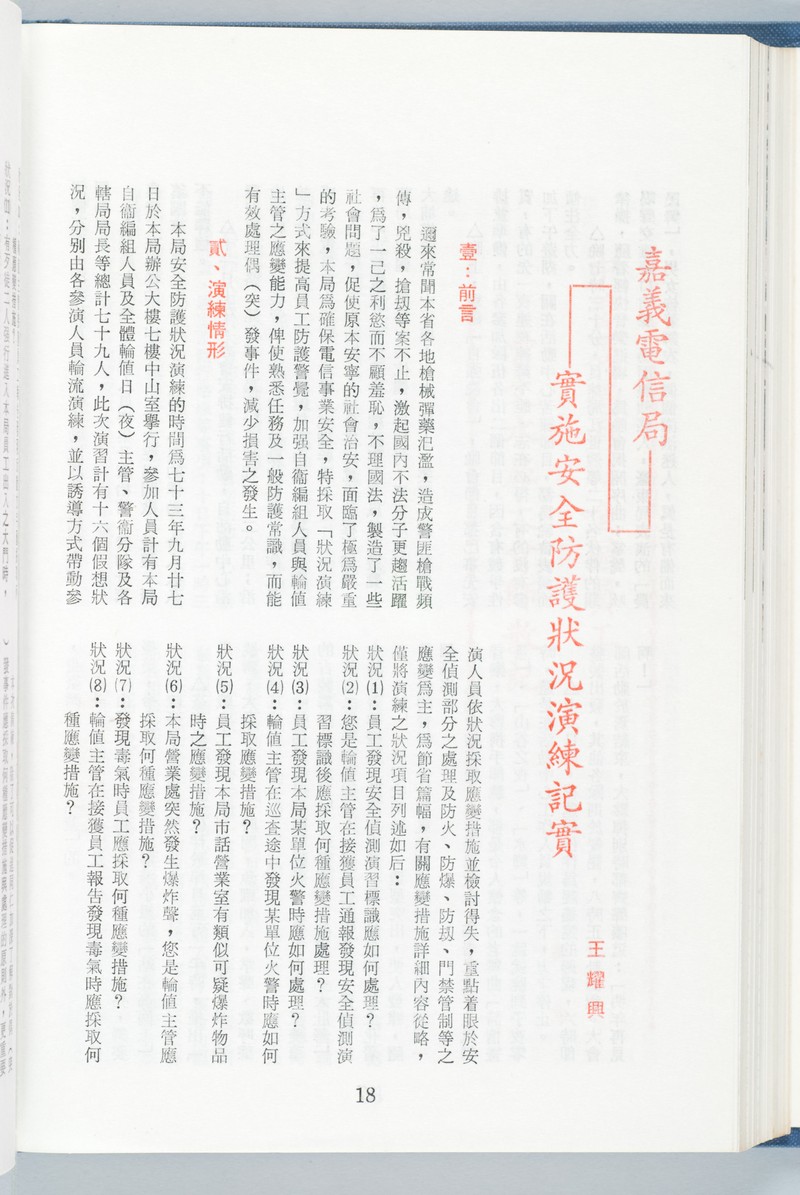 嘉義電信局
實施安全防護狀況演練記實
王耀興
壹：前言
邇來常聞本省各地槍械彈藥氾濫，造成警匪槍戰頻
傳，兇殺，搶刼等案不止，激起國內不法分子更趨活躍
，爲了一己之利慾而不顧羞恥，不理國法，製造了一些
社會問題，促使原本安寧的社會治安，面臨了極爲嚴重
的考驗，本局爲確保電信事業安全，特採取「狀況演練
」方式來提高員工防護警覺，加强自衞編組人員與輪值
主管之應變能力，俾使熟悉任務及一般防護常識，而能
有效處理偶（突）發事件，減少損害之發生。
貳、演練情形
本局安全防護狀況演練的時間爲七十三年九月廿七
日於本局辦公大樓七樓中山室舉行，參加人員計有本局
自衞編組人員及全體輪值日（夜）主管、警衞分隊及各
轄局局長等總計七十九人，此次演習計有十六個假想狀
況，分別由各參演人員輪流演練，並以誘導方式帶動參
演人員依狀況採取應變措施並檢討得失，重點着眼於安
全偵測部分之處理及防火、防爆、防刼、門禁管制等之
應變爲主，爲節省篇幅，有關應變措施詳細內容從略，
僅將演練之狀況項目列述如后：
狀況⑴：員工發現安全偵測演習標識應如何處理？
狀況⑵：您是輪值主管在接獲員工通報發現安全偵測演
習標識後應採取何種應變措施處理？
狀況⑶：員工發現本局某單位火警時應如何處理？
狀況⑷：輪值主管在巡查途中發現某單位火警時應如何
採取應變措施？
狀況⑸：員工發現本局市話營業室有類似可疑爆炸物品
時之應變措施？
狀況⑹：本局營業處突然發生爆炸聲，您是輪值主管應
採取何種應變措施？
狀況⑺：發現毒氣時員工應採取何種應變措施？
狀況⑻：輪值主管在接獲員工報告發現毒氣時應採取何
種應變措施？
18